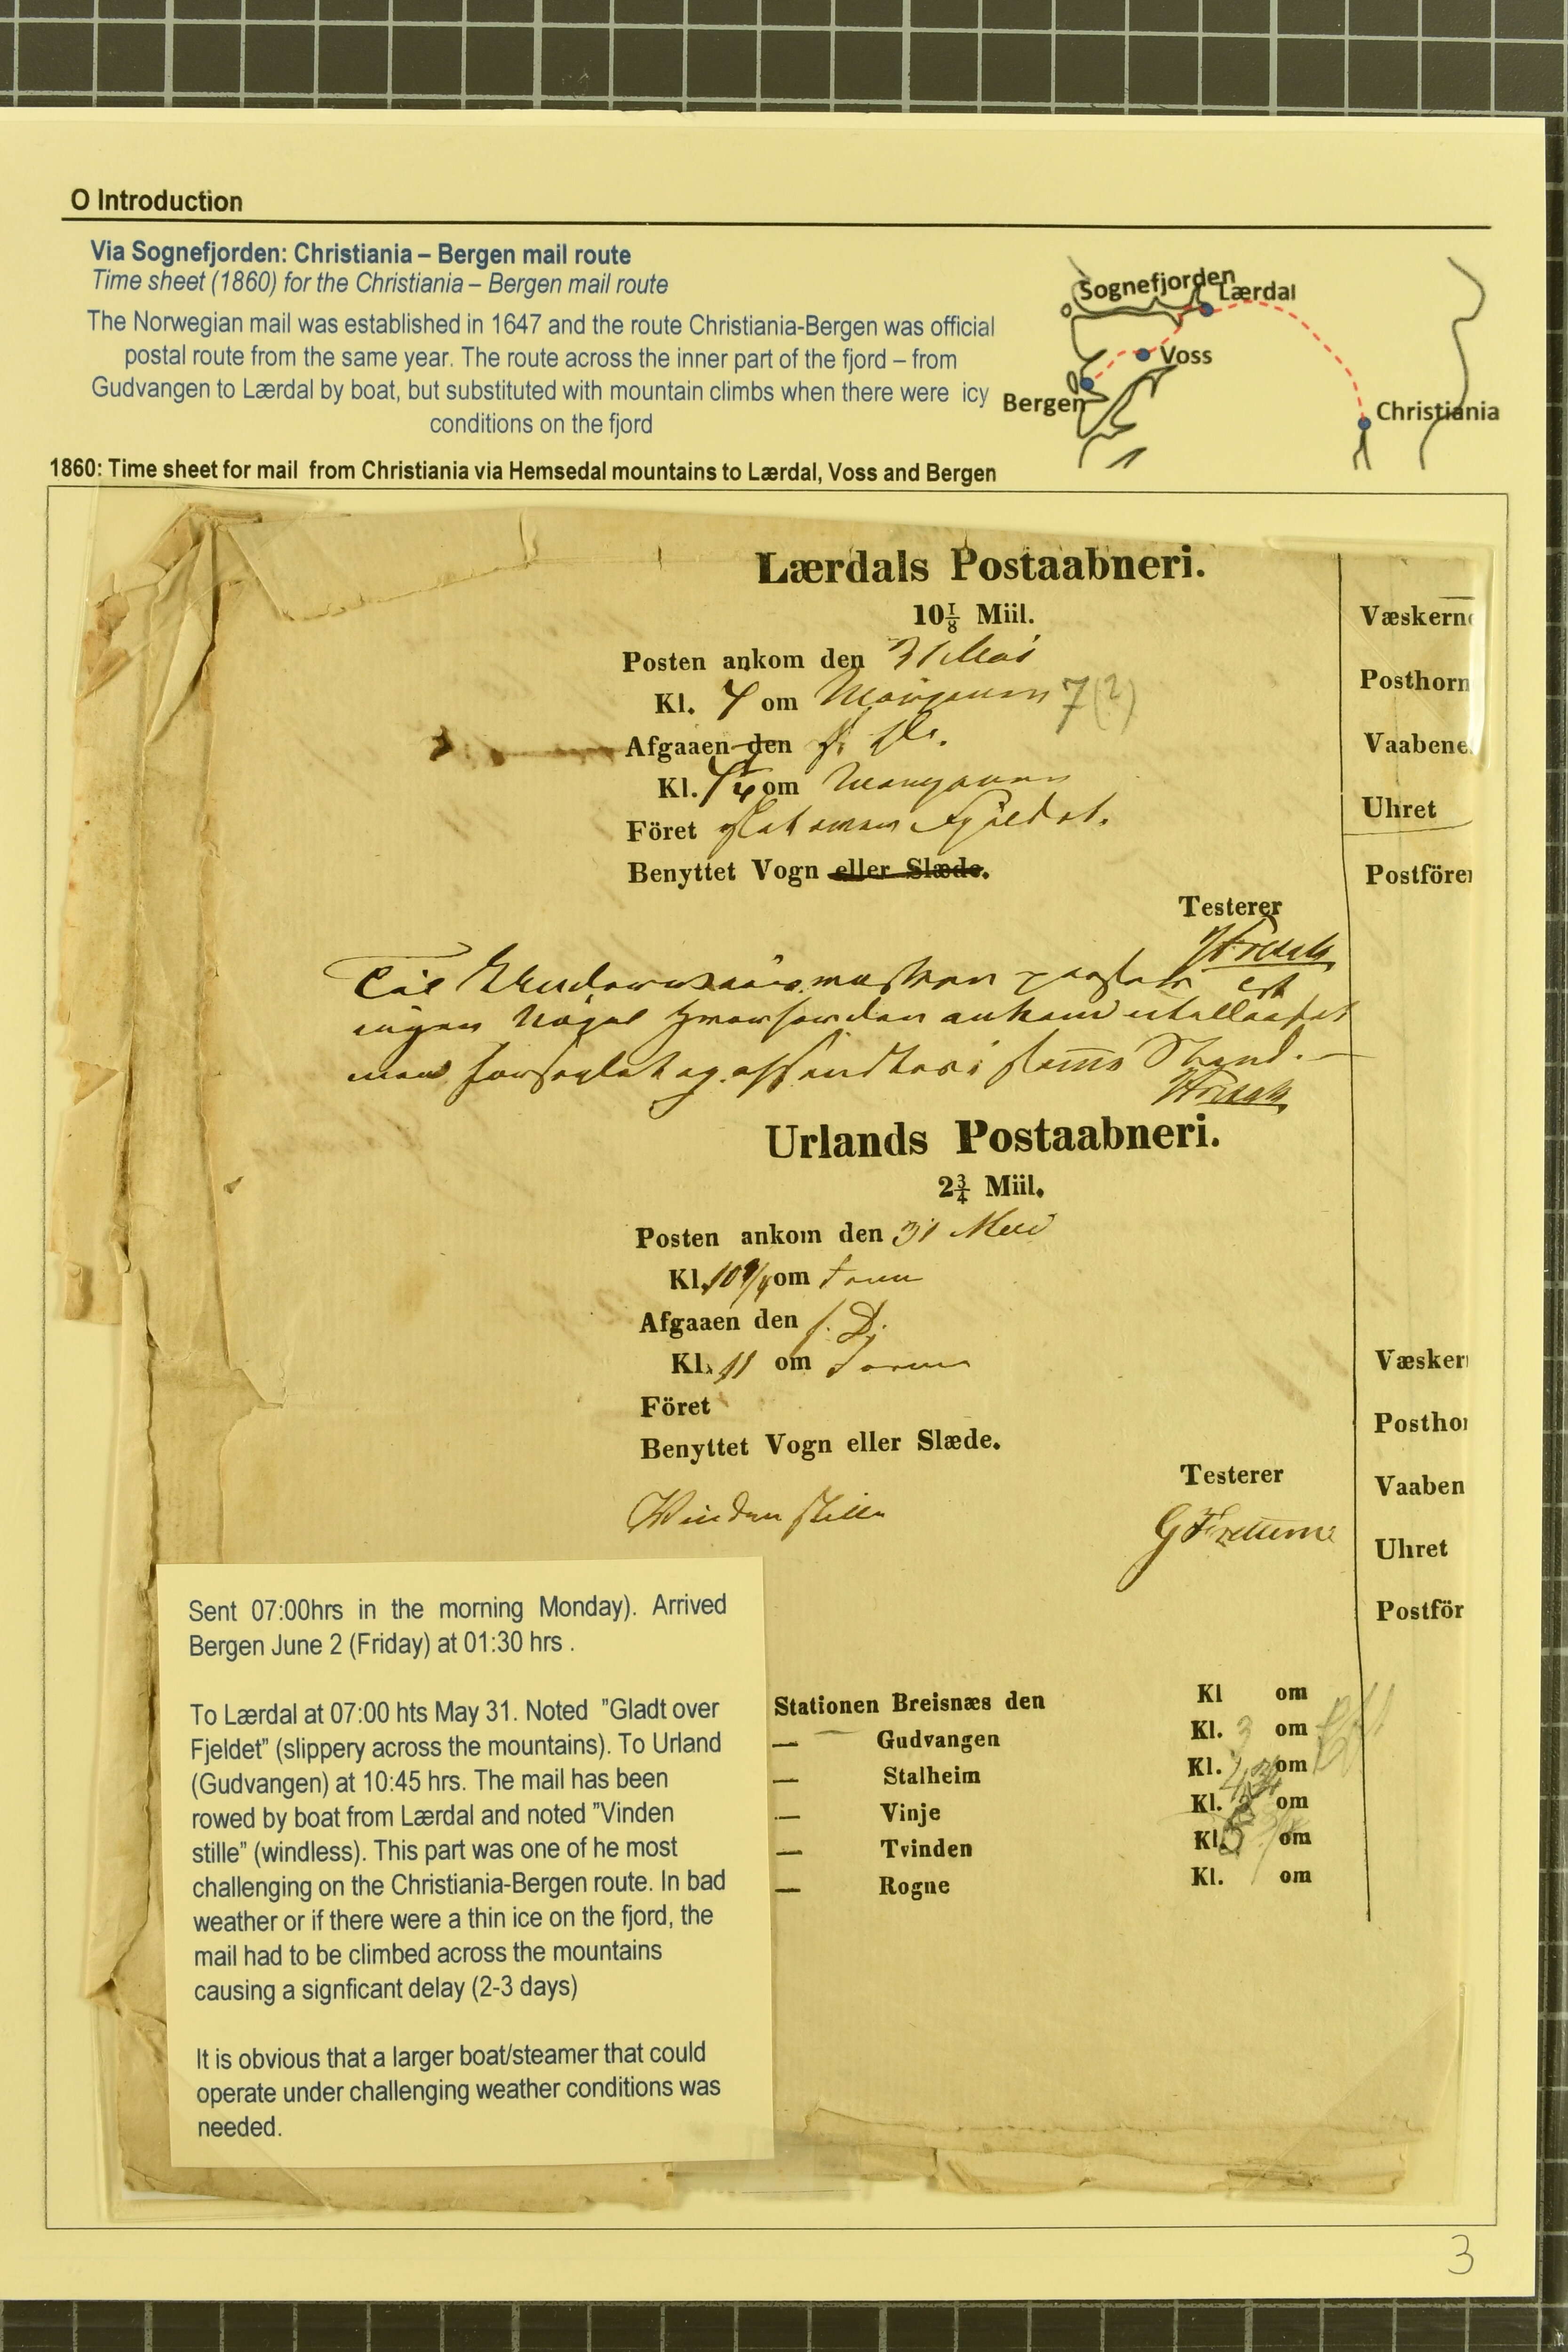 O Introduction
Via Sognefjorden: Christiania – Bergen mail route
Time sheet (1860) for the Christiania – Bergen mail route
The Norwegian mail was established in 1647 and the route Christiania-Bergen was official
postal route from the same year. The route across the inner part of the fjord – from
Gudvangen to Lærdal by boat, but substituted with mountain climbs when there were icy
conditions on the fjord
Sognefjorden
Lærdal
Voss
Bergen
Christiania
1860: Time sheet for mail from Christiania via Hemsedal mountains to Lærdal, Voss and Bergen
Lærdals Postaabneri.
10 1/8 Miil.
Posten ankom den 31 Mai
Kl. 7 om Morgenen 7(?)
Afgaaen den s. D.
Kl. om Morgenen
Föret Glat over Fjeldet.
Benyttet Vogn eller Slæde.
Testerer
Væskerne
Posthorn
Vaabene
Uhret
Postförer
ingen Nögel
og afsendtes i samme Stand.
Urlands Postaabneri.
2 3/4 Miil.
Posten ankom den 31 Mai
Kl. 10 3/4 om Form
Afgaaen den s. D.
Kl. 11 om Form
Föret
Benyttet Vogn eller Slæde.
Testerer
Vinden stille
Væsker
Posthor
Vaaben
Uhret
Postför
Sent 07:00hrs in the morning Monday). Arrived
Bergen June 2 (Friday) at 01:30 hrs .
To Lærdal at 07:00 hts May 31. Noted ”Gladt over
Fjeldet” (slippery across the mountains). To Urland
(Gudvangen) at 10:45 hrs. The mail has been
rowed by boat from Lærdal and noted ”Vinden
stille” (windless). This part was one of he most
challenging on the Christiania-Bergen route. In bad
weather or if there were a thin ice on the fjord, the
mail had to be climbed across the mountains
causing a signficant delay (2-3 days)
It is obvious that a larger boat/steamer that could
operate under challenging weather conditions was
needed.
Stationen Breisnæs den Kl om
— Gudvangen Kl. 3 om
— Stalheim Kl. om
— Vinje Kl. om
— Tvinden Kl. om
— Rogne Kl. om
3